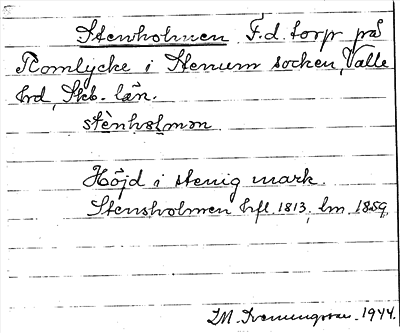 Stenholmen. F.d. torp på
Romlycke i Stenum socken, Valle
hrd, Skb. län.
stènhɷlmən
Höjd i stenig mark.
Stensholmen hfl. 1813, lm. 1859,
1944.